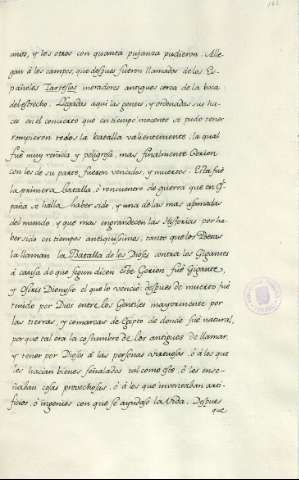 unos, y los otros con quanta pujanza pudieron. Alle-
gan á los campos, que despues fueron llamados de los Es-
pañoles Tartesios moradores antiguos cerca de la boca
del estrecho. Llegadas aqui las gentes, y ordenadas sus ha-
ces en el concierto que en tiempo moderno se pudo tener
rompieron todos la batalla valientemente, la qual
fué muy reñida y peligrosa, mas finalmente Gerion
con los de su parte fueron vencidos, y muertos. Esta fué
la primera batalla, ó rencuentro de guerra que en Es-
paña se halla haber sido, y una de las mas afamadas
del mundo, y que mas engrandecen las Historias por ha-
ber sido en tiempos antiquisimos, tanto que los Poetas
la llaman la Batalla de los Dioses contra los Gigantes
á causa de que segun dicen este Gerion fué Gigante,
y Osiris Dionysio el que lo venció despues de muerto fué
tenido por Dios entre los Gentiles mayormente por
las tierras, y comarcas de Egipto de donde fué natural,
por que tal era la costumbre de los antiguos de llamar
y tener por Dioses á las personas virtuosas, ó á los que
les hacian bienes señalados tal como este, ó les ense-
ñaban cosas provechosas, ó á los que inventaban arti-
ficios, ó ingenios con que se ayudase la Vida. Despues
que